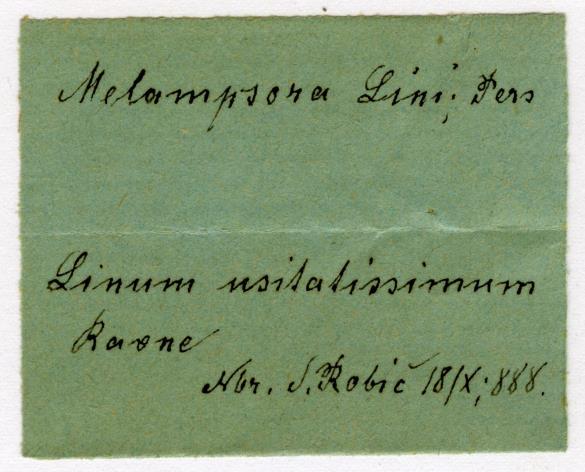 Melampsora Lini; Pers
Linum usitatissimum
Ravne
Nbr. S. Robič 18/X; 888.